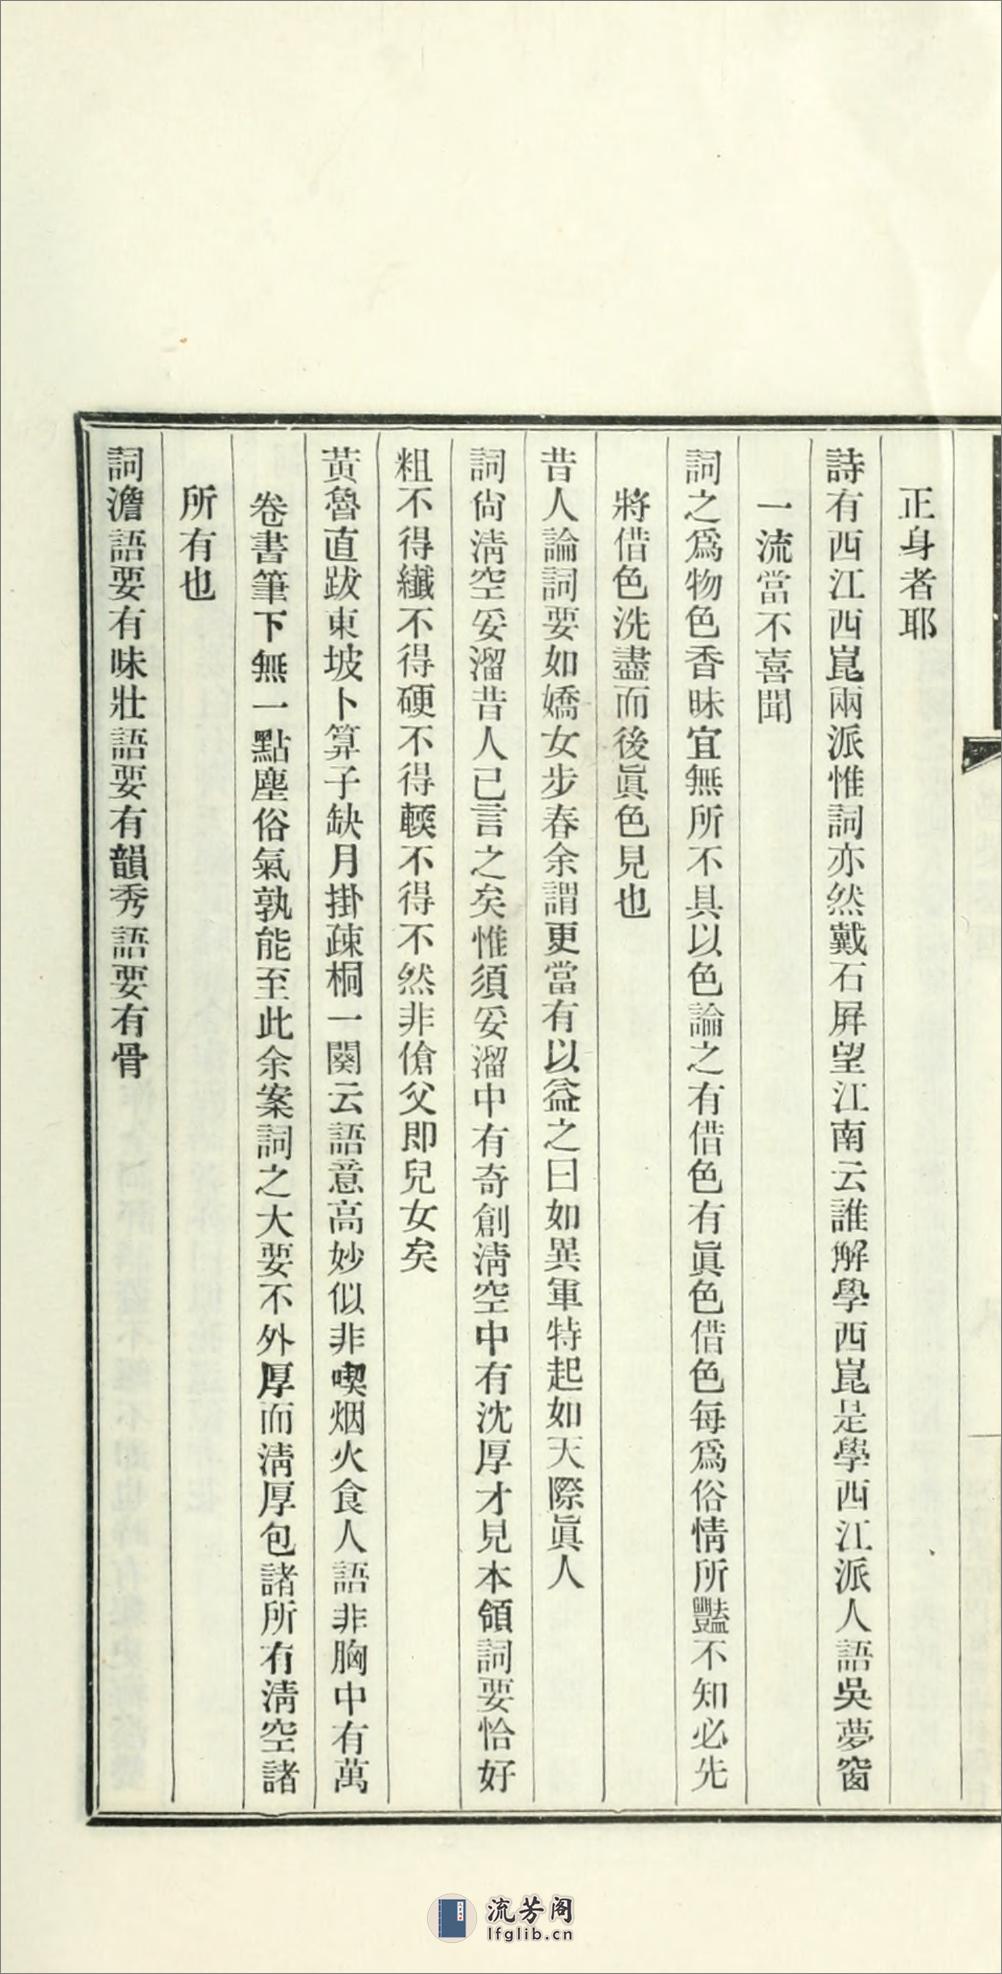 正身者耶
詩有西江西崑兩派惟詞亦然戴石屏望江南云誰解學西崑是學西江派人語吳夢窗
一流當不喜聞
詞之爲物色香味宜無所不具以色論之有借色有眞色借色每爲俗情所豔不知必先
將借色洗盡而後眞色見也
昔人論詞要如嬌女步春余謂更當有以益之曰如異軍特起如天際眞人
詞尙淸空妥溜昔人已言之矣惟須妥溜中有奇創淸空中有沈厚才見本領詞要恰好
粗不得纖不得硬不得輭不得不然非傖父即兒女矣
黃魯直跋東坡卜算子缺月掛疎桐一闋云語意高妙似非喫烟火食人語非胸中有萬
卷書筆下無一點塵俗氣孰能至此余案詞之大要不外厚而淸厚包諸所有淸空諸
所有也
詞澹語要有味壯語要有韻秀語要有骨
流芳阁
lfglib.cn